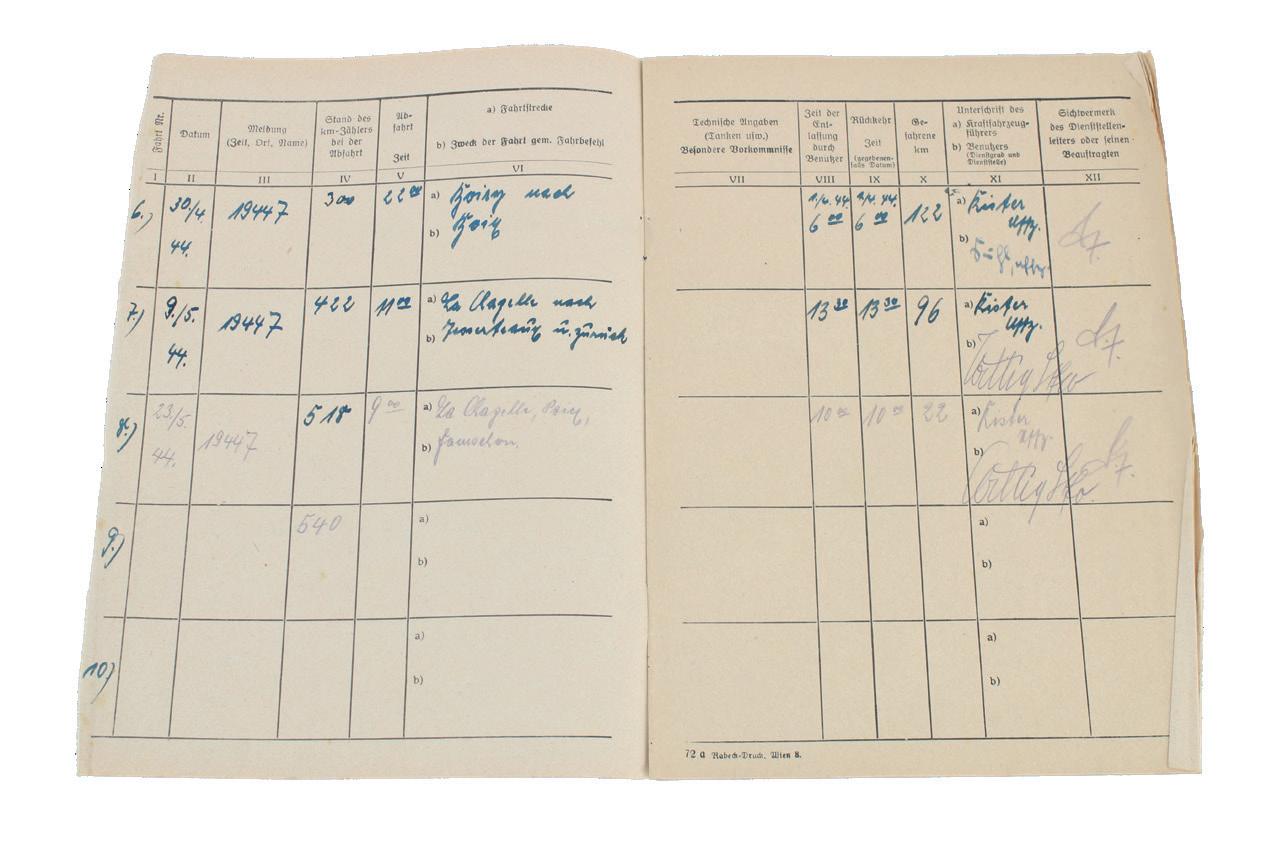 Fahrt Nr.
Datum
Meldung
(Zeit, Ort, Name)
Stand des
km-Zählers
bei der
Abfahrt
Ab-
fahrt
Zeit
a) Fahrtstrecke
b) Zweck der Fahrt gem. Fahrbefehl
I II III IV V VI
6.) 30./4. 19447 300 22 00 a) nach
44. b)
7.) 9./5. 19447 422 11 00 a) La Chapelle nach
44. b) u. zurück
8.) 23/5. 19447 518 9 00 a) La Chapelle, Poix,
44. b)
9.) 540 a)
b)
10) a)
b)
Technische Angaben
(Tanken usw.)
Besondere Vorkommnisse
Zeit der
Ent-
lassung
durch
Benutzer
Rückkehr
Zeit
(gegebenen-
falls Datum)
Ge-
fahrene
km
Unterschrift des
a) Kraftfahrzeug-
führers
b) Benutzers
(Dienstgrad und
Dienststelle)
Sichtvermerk
des Dienststellen-
leiters oder seinen
Beauftragten
VII VIII IX X XI XII
6 00 6 00 122 a) Kister
Uffz.
b)
13 30 13 30 96 a) Kister
Uffz.
b)
10 00 10 00 22 a) Kister
Uffz.
b)
a)
b)
a)
b)
72 a Rabeck-Druck, Wien 8.